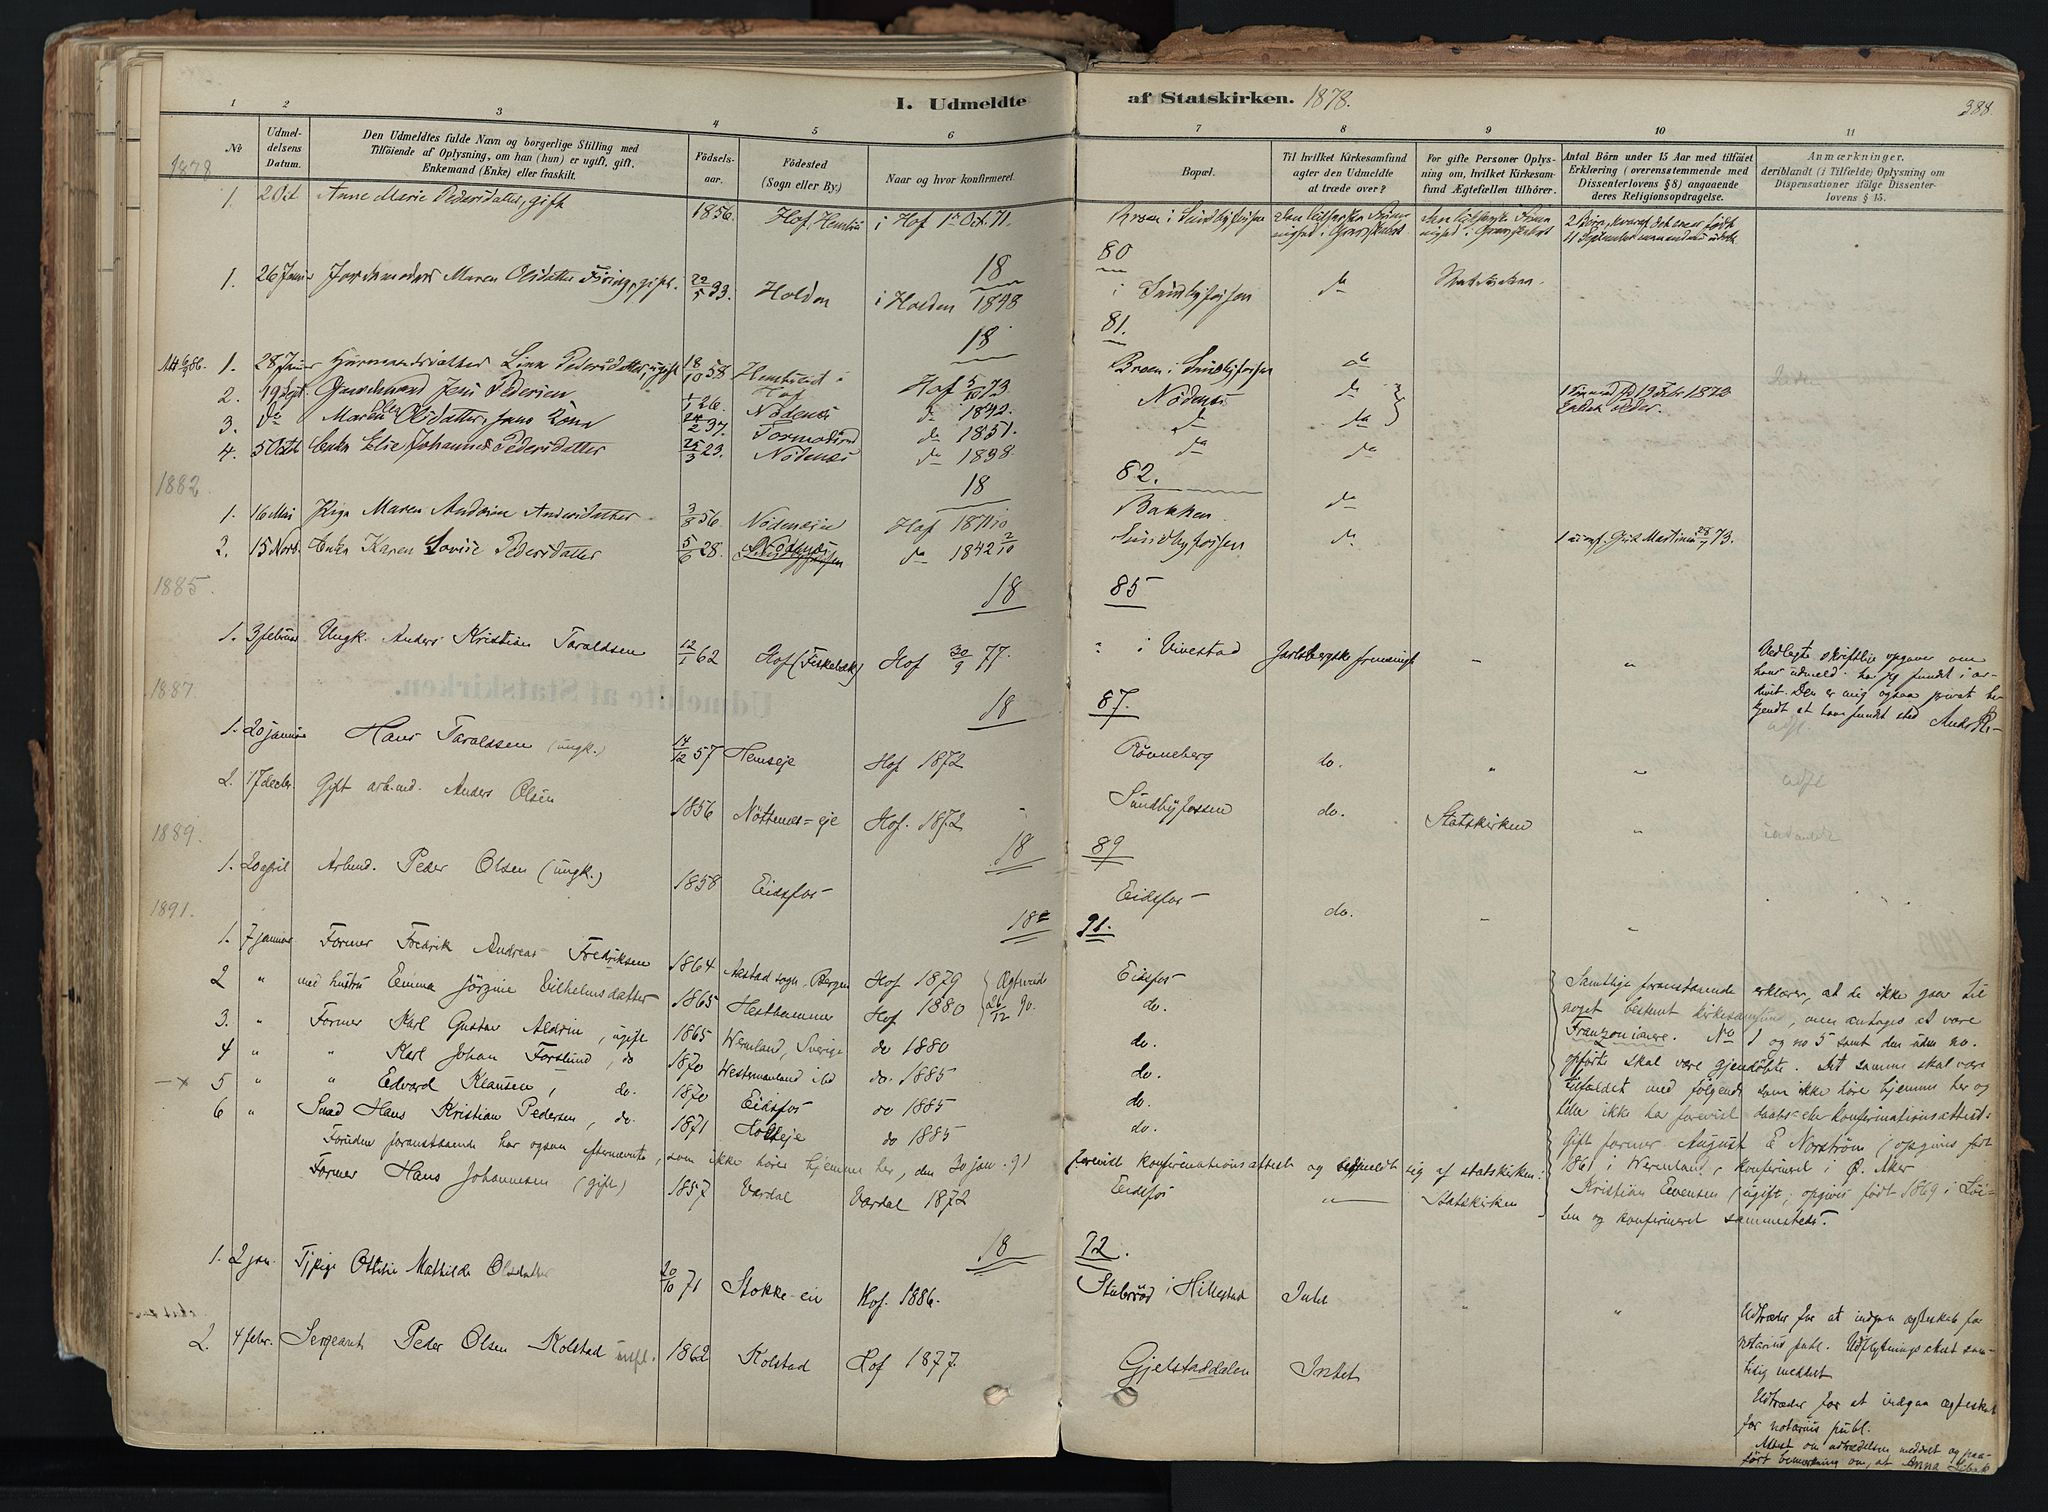 I. Udmeldte af Statskirken. 1878.
388.
1 2 3 4 5 6 7 8 9 10 11
No
Udmeldelsens Datum.
Den Udmeldtes fulde Navn og borgerlige Stilling med
Tilföiende af Oplysning, om han (hun) er ugift, gift,
Enkemand (Enke) eller fraskilt.
Födsels-
aar.
Födested
(Sogn eller By.)
Naar og hvor konfirmeret.
Bopæl.
Til hvilket Kirkesamfund
agter den Udmeldte
at træde over?
For gifte Personer Oplys-
ning om, hvilket Kirkesam-
fund Ægtefællen tilhörer.
Antal Börn under 15 Aar med tilföiet
Erklæring (overensstemmende med
Dissenterlovens § 8) angaaende
deres Religionsopdragelse.
Anmærkninger,
deriblandt (i Tilfælde) Oplysning om
Dispensationer ifölge Dissenter-
lovens § 15.
1878
1. 2 Oct Anne Marie Pedersdatter, gift 1856. Hof, i Hof 1ste Oct. 71. Broen i Sundbyfossen
18 80
1. 26 Januar Jordemoder Maren Olsdatter, gift. 22/5 33. Holden i Holden 1848 i Sundbyfossen do Statskirken.
18 81.
1. 28 Januar Lina Pedersdatter, ugift 18/10 58 i Hof Hof 5/10 73 Broen i Sundbyfossen do
2. 19 Sept. Gaardmand Jens Pedersen 26. Nödenæs do 1842. Nödenæs do
3. do Maren Olsdatter, hans Kone 24/2 37. do 1851. do do
4. 5 Octb Enke Elie Johanne Pedersdatter 25/3 23. Nödenæs do 1838. do do
1882. 18 82.
1. 16 Mai Pige Maren Andrine Andersdatter 3/8 56 Nödenæseie Hof 1871 Bakken. do
2. 15 Novb. Enke Karen Lovise Pedersdatter 5/6 28. Nödenæs do 1842 2/10 Sundbyfossen do
1885. 18 85
1. 3 februar Ungk. Anders Kristian Taraldsen 12/1 62 Hof (Fiskebæk) Hof 30/9 77. " i Vivestad Jarlsbergske frimenigh " " Vedlagte skriftlige opgaver om
hans udmeld. har jeg fundet i ar-
kivet. Den er mig ogsaa privat be-
kjendt at have fundet sted
1887. 18 87.
1. 20 januar Hans Taraldsen (ungk.) 14/12 57 Hemseje Hof 1872 Rönneberg do. " "
2. 17 decbr. Gift arb.md. Anders Olsen 1856 Nöttenæs=eje Hof. 1872 Sundbyfossen do. Statskirken "
1889. 18 89
1. 20 april Arbmd. Peder Olsen (ungk.) 1858 Eidsfos Eidsfos do. " "
1891. 18 91.
1. 7 januar Former Fredrik Andreas Fredriksen 1864 Aastad sogn, Bergen Hof 1879 Eidsfos
2 " med hustru Emma Jörgine Vilhelmsdatter 1865 Hesthammer Hof 1880 26/12 90. do.
3. " Former Karl Gustav Aldrin, ugift 1865 Wermland, Sverige do 1880 do.
4 " " Karl Johan Forslund, do 1870 Westmanland ibd do. 1885 do.
5 " " Edvard Klausen, do. 1870 Eidsfos do 1885 do.
6 " Smed Hans Kristian Pedersen, do. 1871 do 1885 do.
Samtlige foranstaaende erklærer, at de ikke gaar til
noget bestemt kirkesamfund, men antages at være
Franzonianere. No 1 og no 5 samt den uden no.
opförte skal være gjendöbte. Det samme skal være
tilfældet med fölgende som ikke höre hjemme her og
heller ikke ha forevist daabs- eller konfirmationsattest:
Gift former August E Norström (opgives födt
1861 i Wermland, konfirmeret i Ö. Aker
Kristian Evensen (ugift, opgives födt 1869 i Löi-
ten og konfirmeret sammesteds.
Foruden foranstaaende har ogsaa efternævnte, som ikke hörer hjemme her, den 30 jan. 91 forevist konfirmationsattest og udmeldt sig af statskirken:
Former Hans Johannesen (gift) 1857 Vardal Vardal 1872 Eidsfos " Statskirken
18 92.
1. 2 jan. Pige Ottilie Mathilde Olsdatter 20/10 71 Stokke-eie Hof. 1886. Stubröd i Hillestad Intet " "
Udtræder for at indgaa ægteskab for
notarius publ. Udflytningsattest sam-
tidig meddelt
2. 4 febr. Sergeant Peder Olsen Kolstad 1862 Kolstad Hof 1877. Gjelstaddalen Intet
Udtræder for at indgaa ægteskab
for notarius publ.
Attest om udtrædelsen meddelt og paa-
fört bemerkning om, at Anna